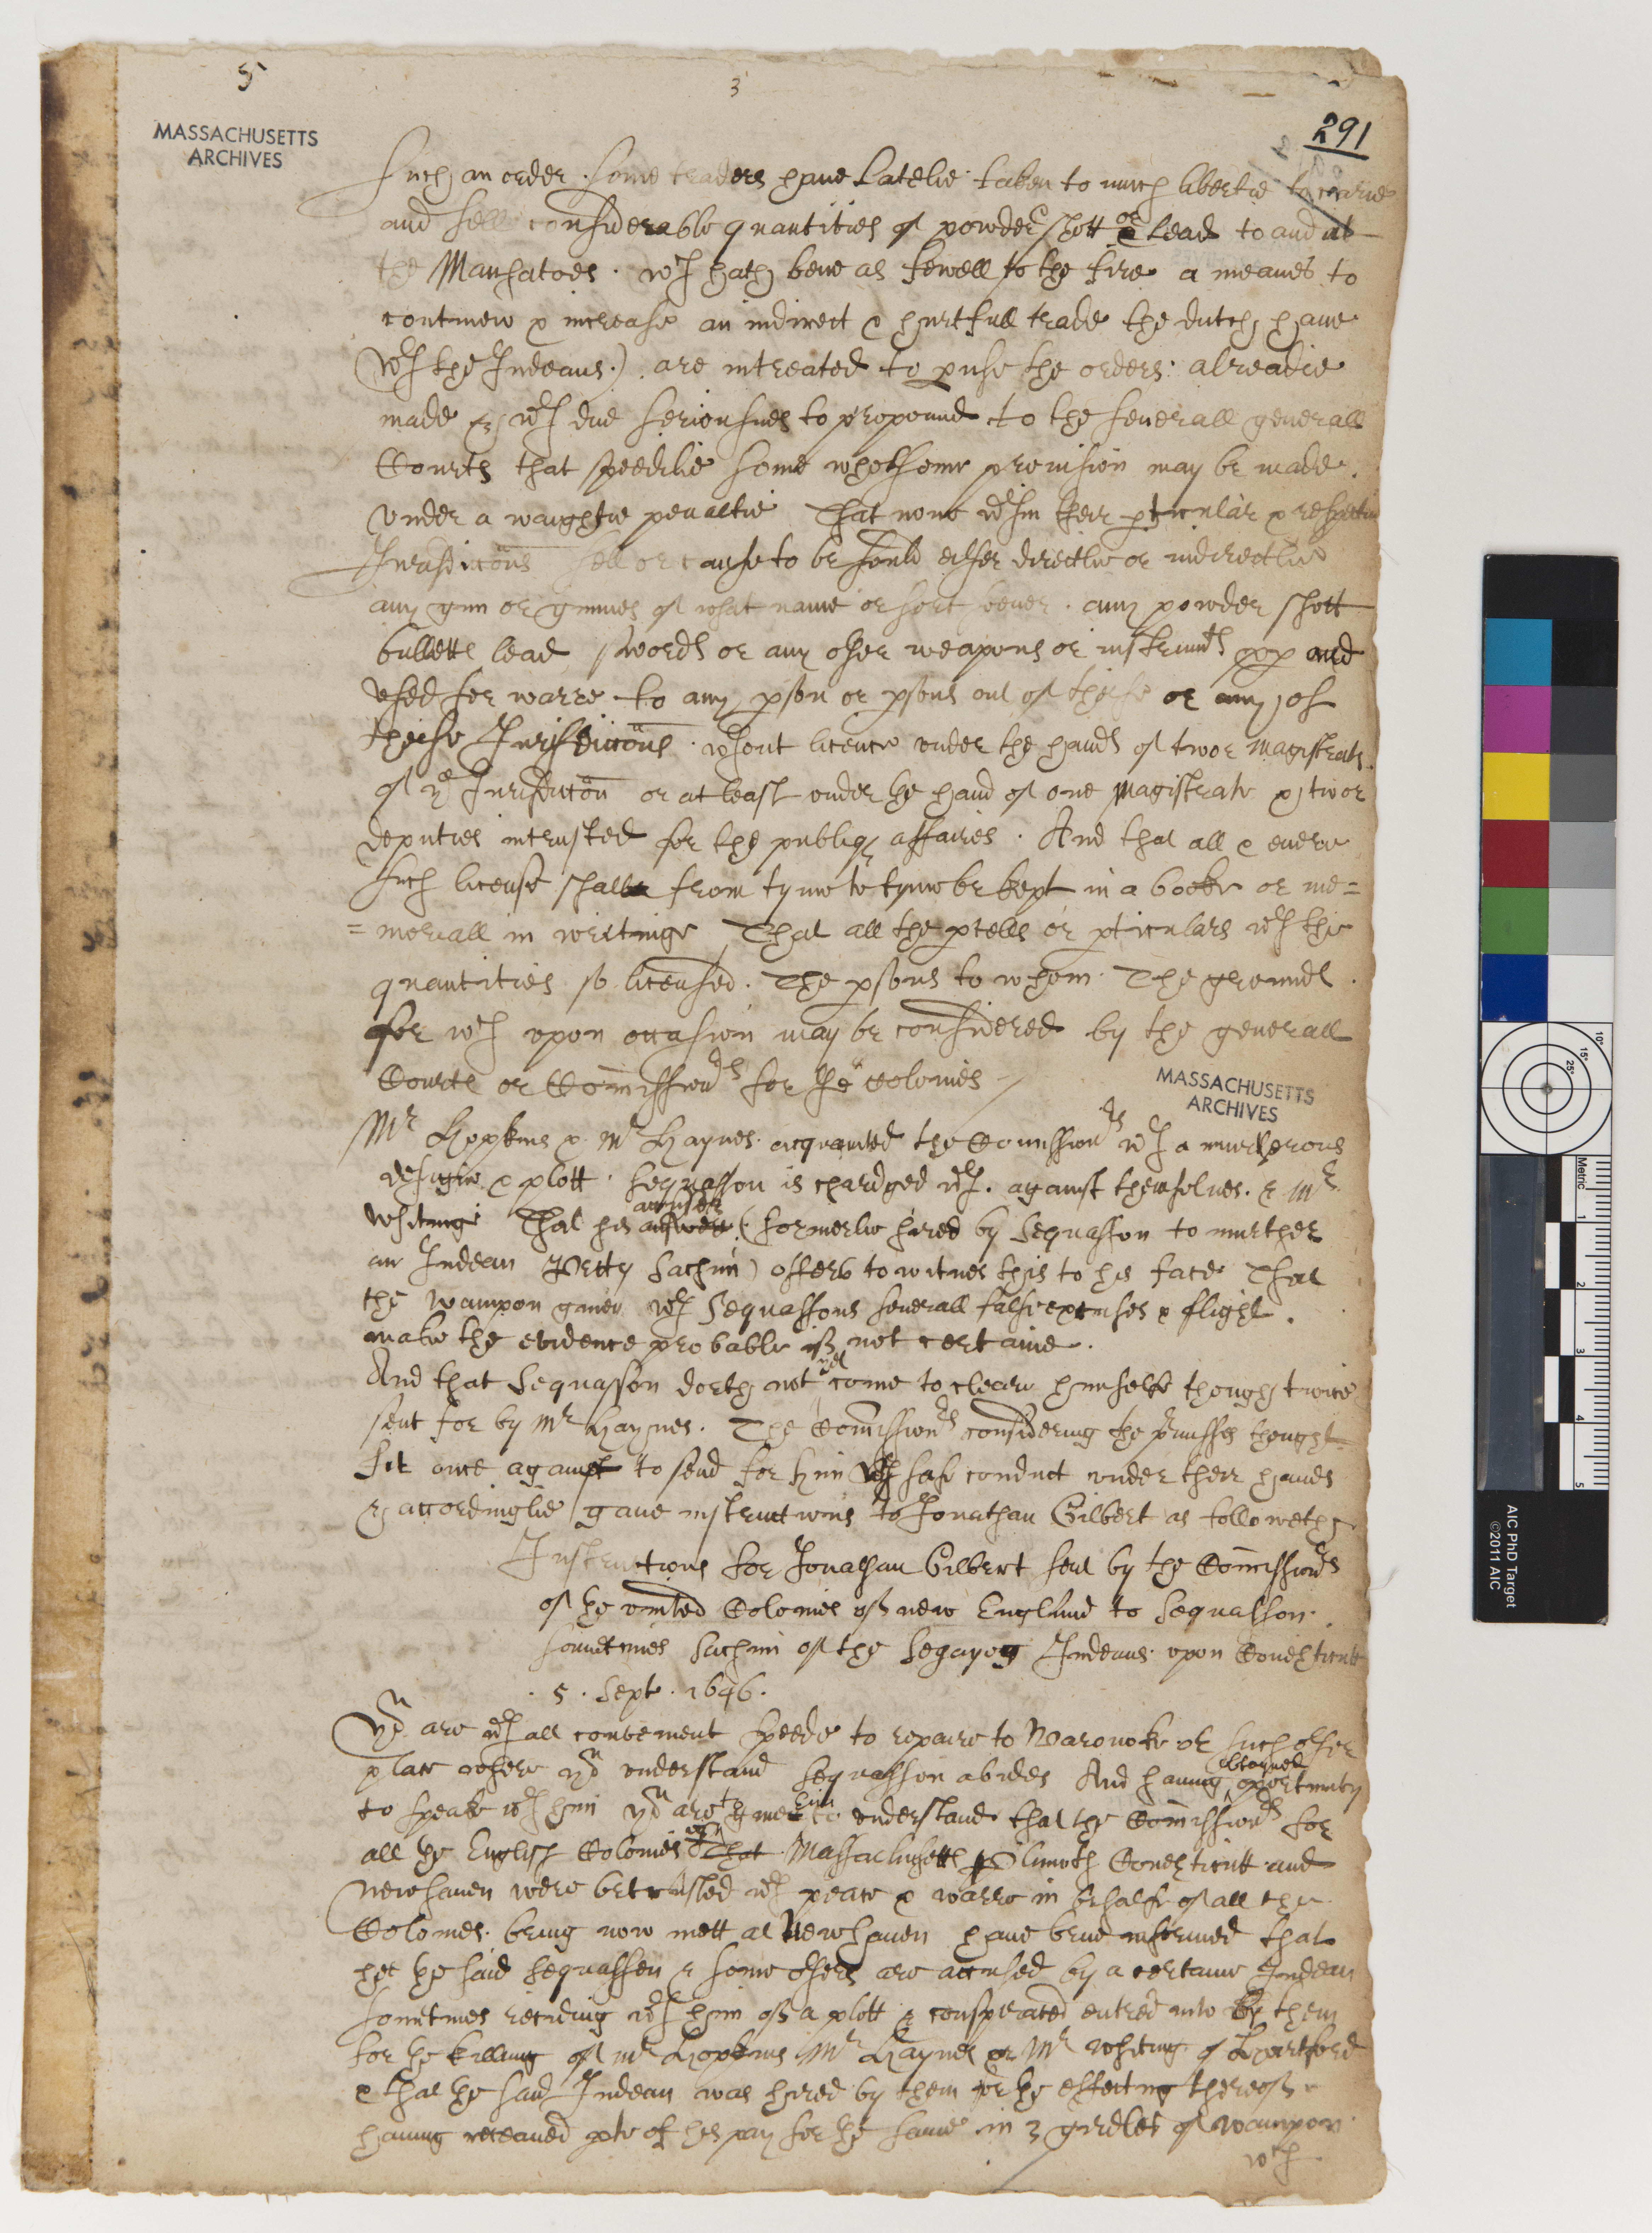 5
3
MASSACHUSETTS
ARCHIVES
291
Such an order. some traders haue Latelie taken to much libertie to carie
and sell considerable quantities of powder shott or Lead to and at
the Manhatoes. wch hath bene as fewell to the fire a meanes to
continew & increase an indirect & hurtfull trade the dutch haue
wth the Indeans.) are intreated to pvse the orders alreadie
made & wth due seriousnes to propound to the seuerall generall
Courts that speedilie some wholsome prouision may be made.
vnder a waightie penaltie That none wthin their pticular & respectiue
Jurisdictions sell or cause to be sould either directlie or indirectlie
any gun or gunnes of what name or sort soeuer. any powder shott
bullets lead swords or any other weapons or instrumts and
vsed for warre to any pson or psons out of theise or any of
theise Jurisdictions. wthout licence vnder the hands of twoe Magistrats.
of yt Jurisdiction or at least vnder the hand of one Magistrate & twoe
deputies intrusted for the publiq affaires. And that all & euerie
such license shalbe from tyme to tyme be kept in a booke or me=
=moriall in writinge That all the pcells or pticulars wth the
quantities so licensed. The psons to whom. The grounds
for wch vpon occasion may be considered by the generall
Courts or Comissionrs for the colonies
MASSACHUSETTS
ARCHIVES
Mr Hopkins & Mr Haynes acquainted the Comissionrs wth a murtherous
designe & plott. Sequasson is chardged wth. against themselues. & Mr
Whitinge That his accuser (formerlie hired by Sequasson to murther
an Indean Petty Sachim) offers to witnes this to his face That
the wampon giuen wth Sequassons seuerall false excuses & flight.
make the evidence probable if not certaine.
And that Sequasson doeth not yet come to cleare himselfe though twice
sent for by Mr Haynes. The Comissionrs considering the prmisses thought
fit once againe to send for him wth safe conduct vnder their hands
& accordinglie gaue instructions to Jonathan Gilbert as followeth
Instructions for Jonathan Gilbert sent by the Comissionrs
of the vnited Colonies of new England to Sequasson.
sometimes Sachim of the Indeans vpon Conecticutt
. 5. Sept. 1646.
You are wth all convenient speede to repaire to Waronoke or such other
place where you vnderstand Sequasson abides And hauing obteyned oportunity
to speake wth him you are to giue him to vnderstand that the Comissionrs for
all the English Colonies Massachusetts Plimoth Conecticutt and
Newhaven were betrusted wth peace & warre in behalfe of all the
Colonies. being now mett at Newhauen haue bene informed that
he the said Sequassen & some others are accused by a certaine Indean
sometimes reciding wth him of a plott & entred into by them
for the killing of Mr Hopkins Mr Haynes or Mr Whiting of Hartford
& that the said Indean was hired by them for the effecting thereof
hauing receaued pte of his pay for the same in 3 girdles of wampon
wch